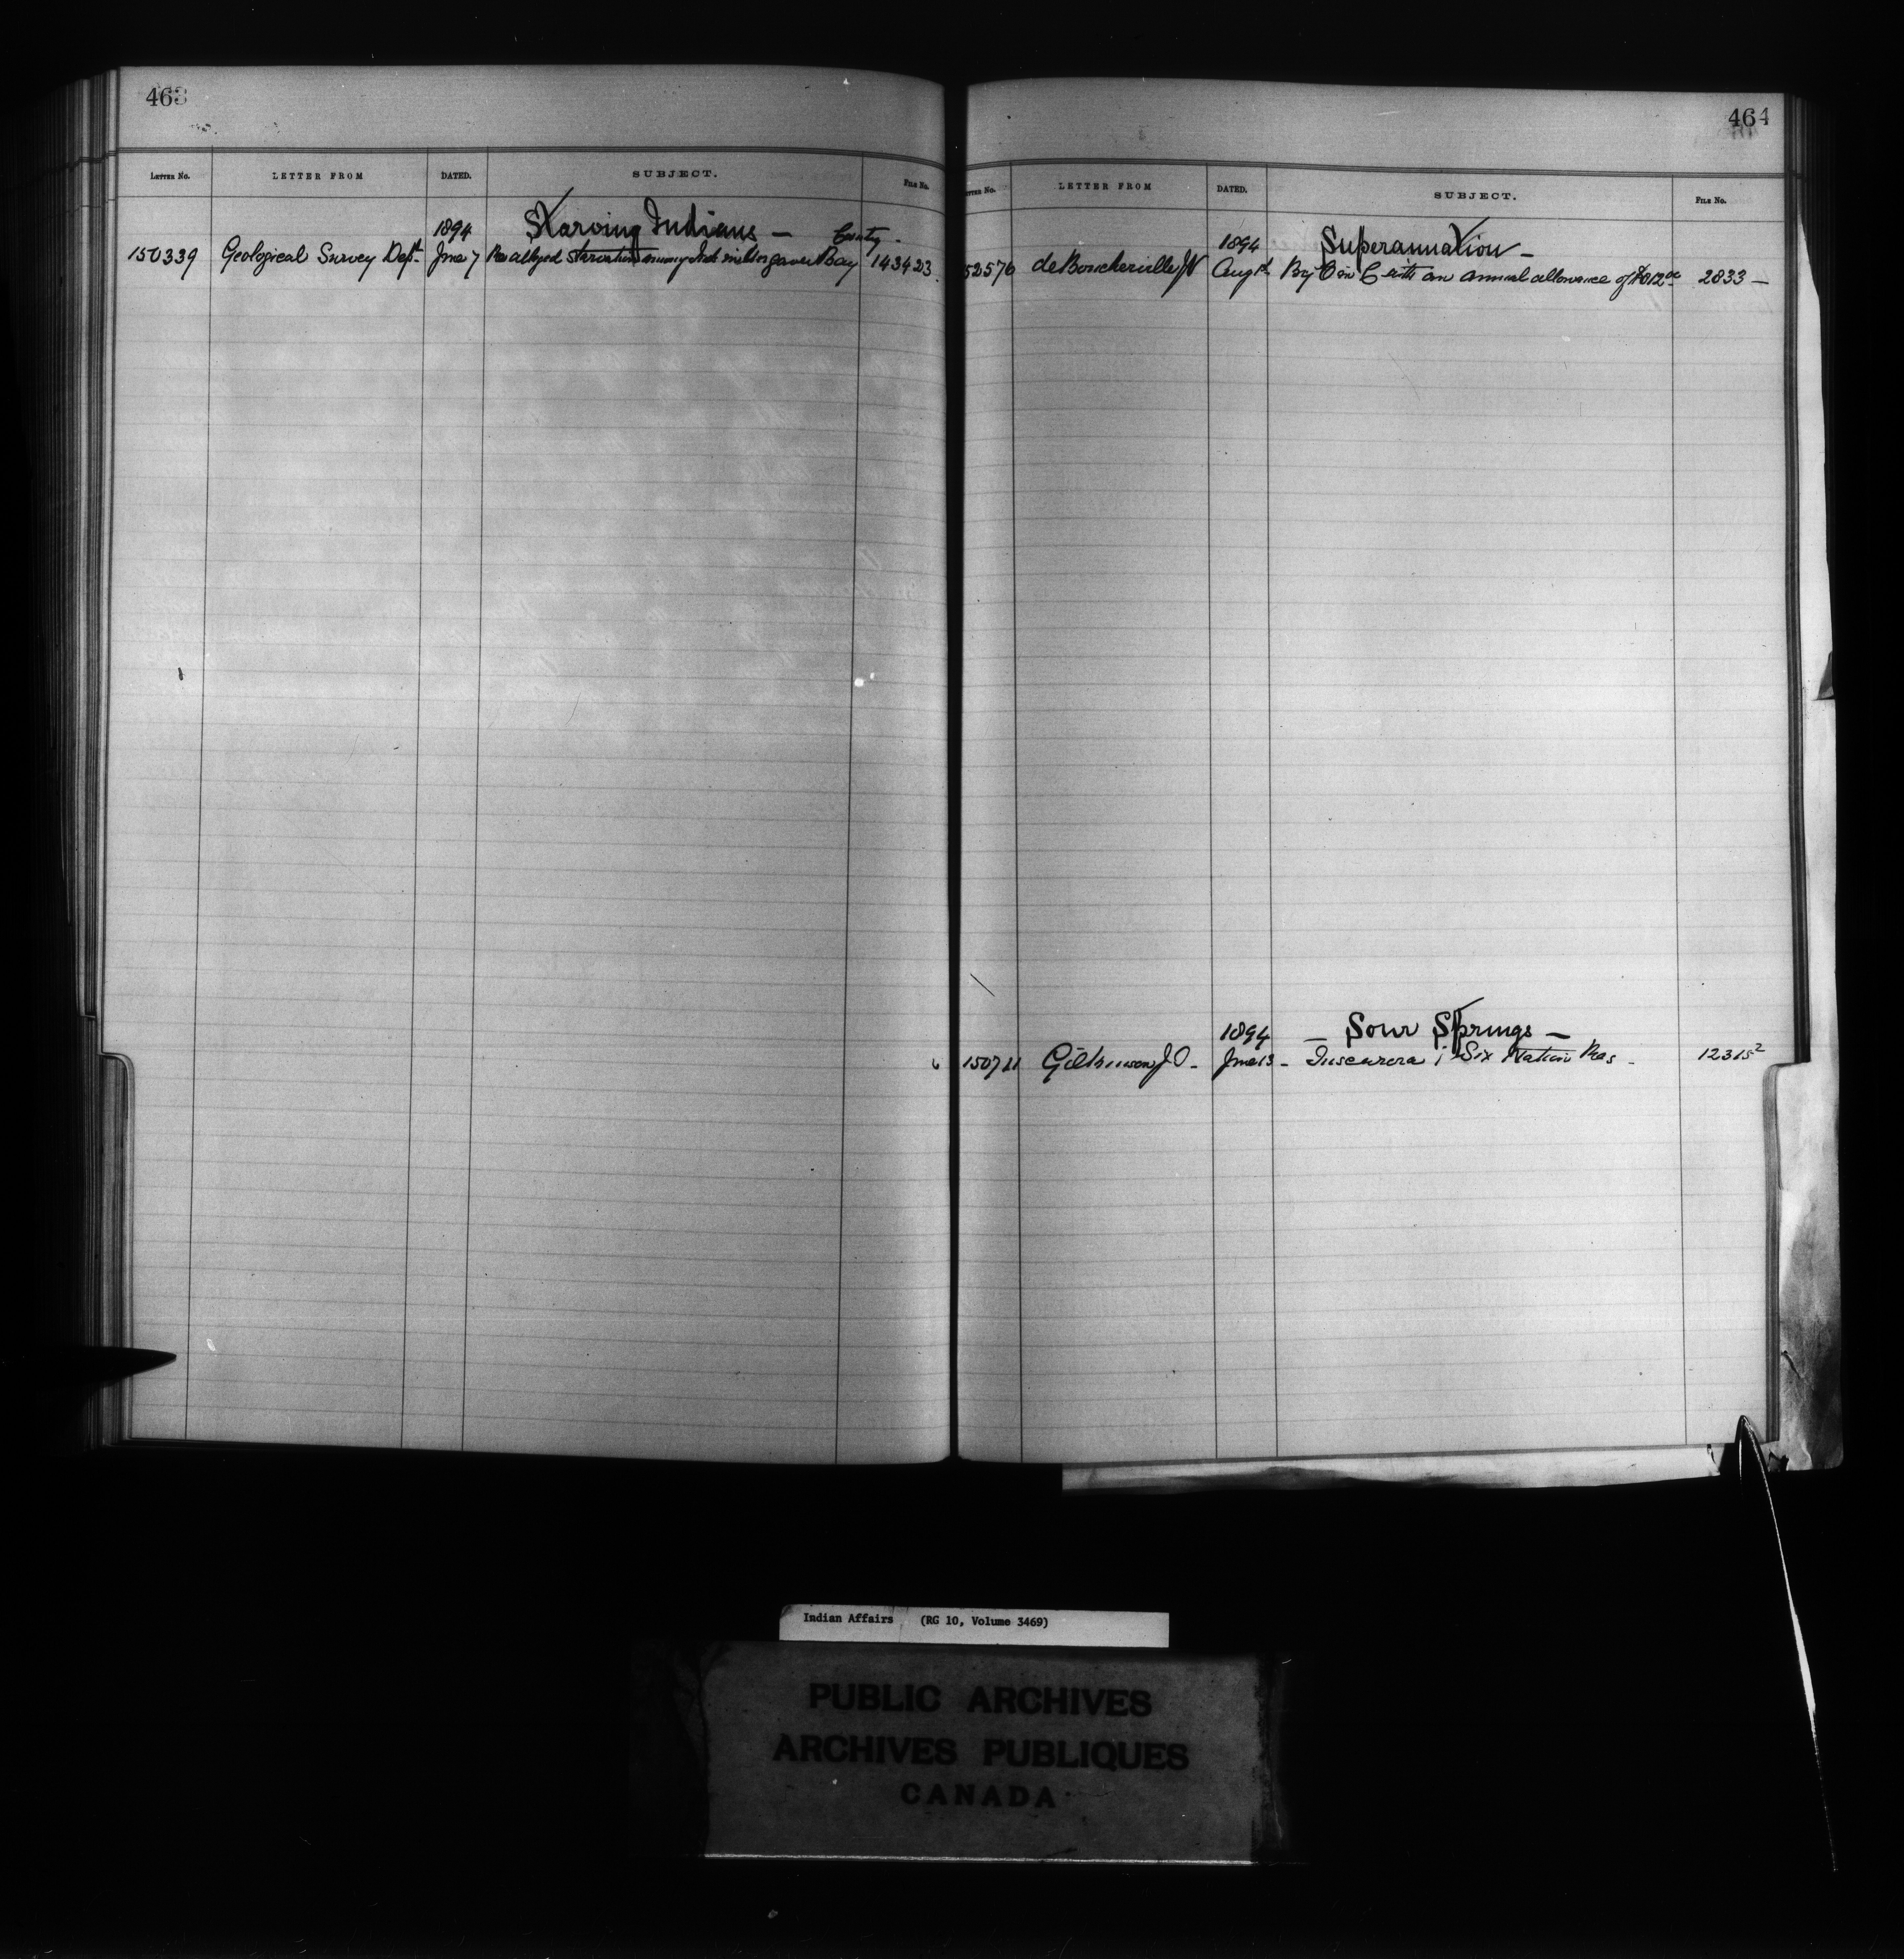 463
LETTER NO. LETTER FROM DATED. SUBJECT. FILE NO.
1894 Starving Indians —
150339 Geological Survey Dept. June 7 Re alleged starvation among Inds in Ungava Bay Country - 143423
464
LETTER NO. LETTER FROM DATED. SUBJECT. FILE NO.
1894 Superannuation —
52576 de Boucherville J V Aug 1st By O in C with an annual allowance of $812.00 2833 —
1894 — Sour Springs —
150711 Gilkinson J. — June 13 — Tuscarora; Six Nation Res — 12315²
Indian Affairs (RG 10, Volume 3469)
PUBLIC ARCHIVES
ARCHIVES PUBLIQUES
CANADA